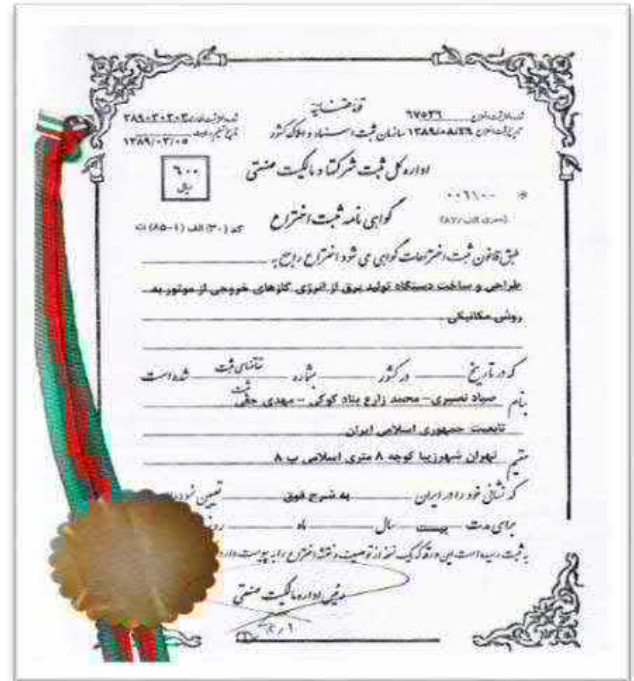 قوه قضاییه
شماره ثبت اختراع ۶۷۵۳۶
تاریخ ثبت اختراع ۱۳۸۹/۰۸/۲۹
سازمان ثبت اسناد و املاک کشور
۳۸۹۰۳۰۲۰۳
۱۳۸۹/۰۳/۰۵
اداره کل ثبت شرکتها و مالکیت صنعتی
۶۰۰ ریال
۰۰۶۱۰۰
گواهی نامه ثبت اختراع
کد (۳۰) الف (۴-۸۵) ث
طبق قانون ثبت اختراعات گواهی می شود اختراع راجع به
طراحی و ساخت دستگاه تولید برق از انرژی گازهای خروجی از موتور به
روش مکانیکی .
که در تاریخ در کشور بشماره تقاضای ثبت شده است
ثبت
بنام صیاد نصیری - محمد زارع بناد کوکی - مهدی حقی
تابعیت جمهوری اسلامی ایران
مقیم تهران شهرزیبا کوچه ۸ متری اسلامی پ ۸
که نشانی خود را در ایران به شرح فوق تعیین نموده
برای مدت بیست سال ماه
به ثبت رسیده است این ورقه که یک نسخه از توصیف و نقشه اختراع را به پیوست دارد
رئیس اداره مالکیت صنعتی